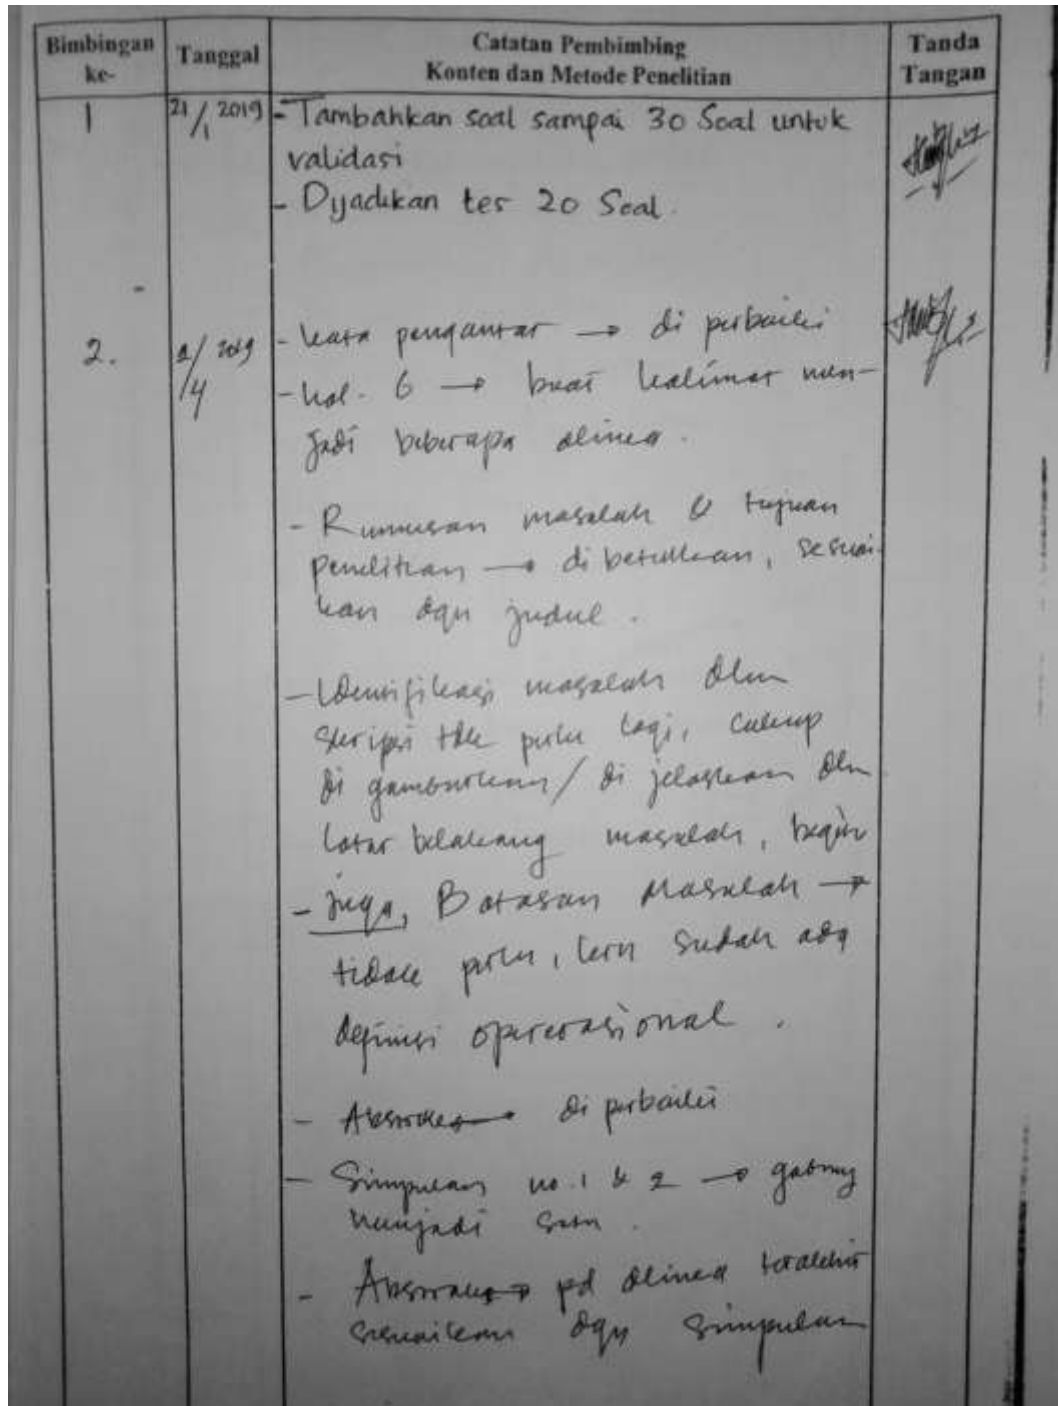 Bimbingan ke-
Tanggal
Catatan Pembimbing
Konten dan Metode Penelitian
Tanda Tangan
1
21/1 2019
- Tambahkan soal sampai 30 Soal untuk
validasi
- Dijadikan tes 20 Soal.
2.
2/4 2019
- kata pengantar → di perbaiki
- hal. 6 → buat kalimat men-
jadi beberapa alinea.
- Rumusan masalah & tujuan
penelitian → di betulkan, sesuai-
kan dgn judul.
- Identifikasi masalah dlm
skripsi tdk perlu lagi, cukup
di gambarkan / di jelaskan dlm
latar belakang masalah, begitu
- juga, Batasan Masalah →
tidak perlu, krn sudah ada
definisi operasional.
- Abstrak → di perbaiki
- Simpulan no. 1 & 2 → gabung
menjadi satu.
- Abstrak → pd alinea terakhir
sesuaikan dgn simpulan